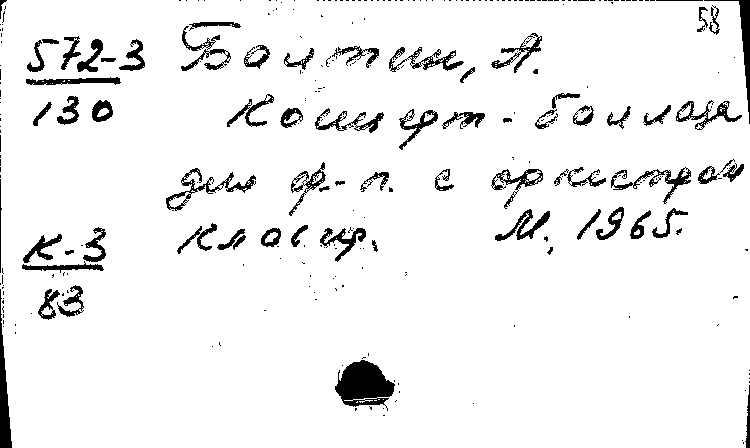 58
572-3 Балтин, А.
130 Концерт-баллада
для ф.-п. с оркестром
К-3 Клавир. М., 1965.
83